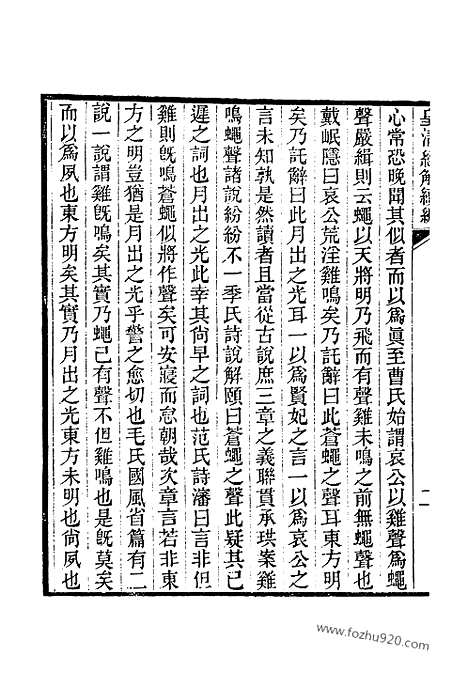 皇清經解續編
二
心常恐晚聞其似者而以爲眞至曹氏始謂哀公以雞聲爲蠅
聲嚴緝則云蠅以天將明乃飛而有聲雞未鳴之前無蠅聲也
戴岷隱曰哀公荒淫雞鳴矣乃託辭曰此蒼蠅之聲耳東方明
矣乃託辭曰此月出之光耳一以爲賢妃之言一以爲哀公之
言未知孰是然讀者且當從古說庶三章之義聯貫承珙案雞
鳴蠅聲諸說紛紛不一季氏詩說解頤曰蒼蠅之聲此疑其已
遲之詞也月出之光此幸其尚早之詞也范氏詩瀋曰言非但
雞則旣鳴蒼蠅似將作聲矣可安寢而怠朝哉次章言若非東
方之明豈猶是月出之光乎警之愈切也毛氏國風省篇有二
說一說謂雞旣鳴矣其實乃蠅已有聲不但雞鳴也是旣莫矣
而以爲夙也東方明矣其實乃月出之光東方未明也尚夙也
www.fozhu920.com